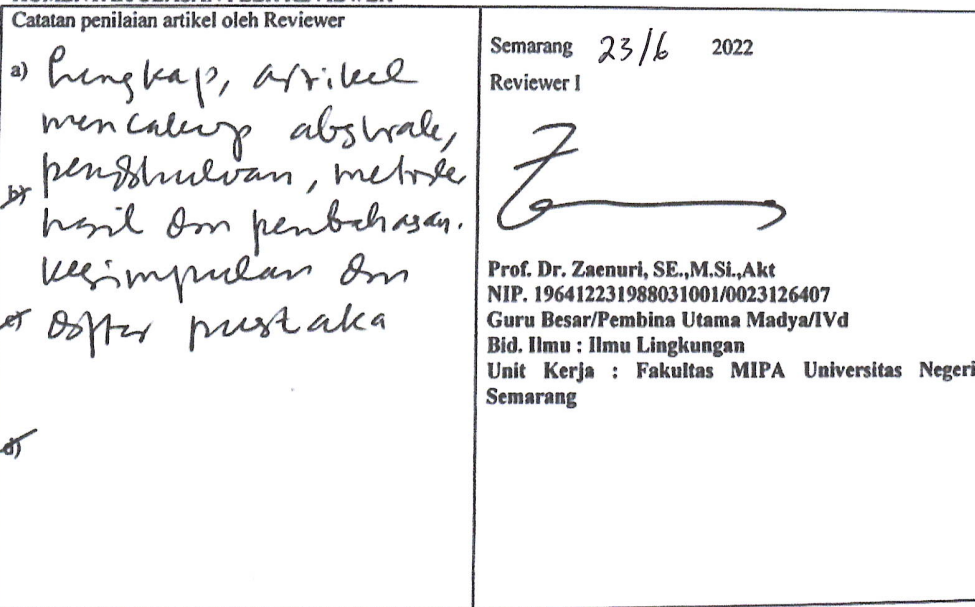 Catatan penilaian artikel oleh Reviewer
a) Lengkap, artikel
mencakup abstrak,
pendahuluan, metode
b)
hasil dan pembahasan.
kesimpulan dan
c) daftar pustaka
d)
Semarang 23/6 2022
Reviewer I
Prof. Dr. Zaenuri, SE.,M.Si.,Akt
NIP. 196412231988031001/0023126407
Guru Besar/Pembina Utama Madya/IVd
Bid. Ilmu : Ilmu Lingkungan
Unit Kerja : Fakultas MIPA Universitas Negeri
Semarang